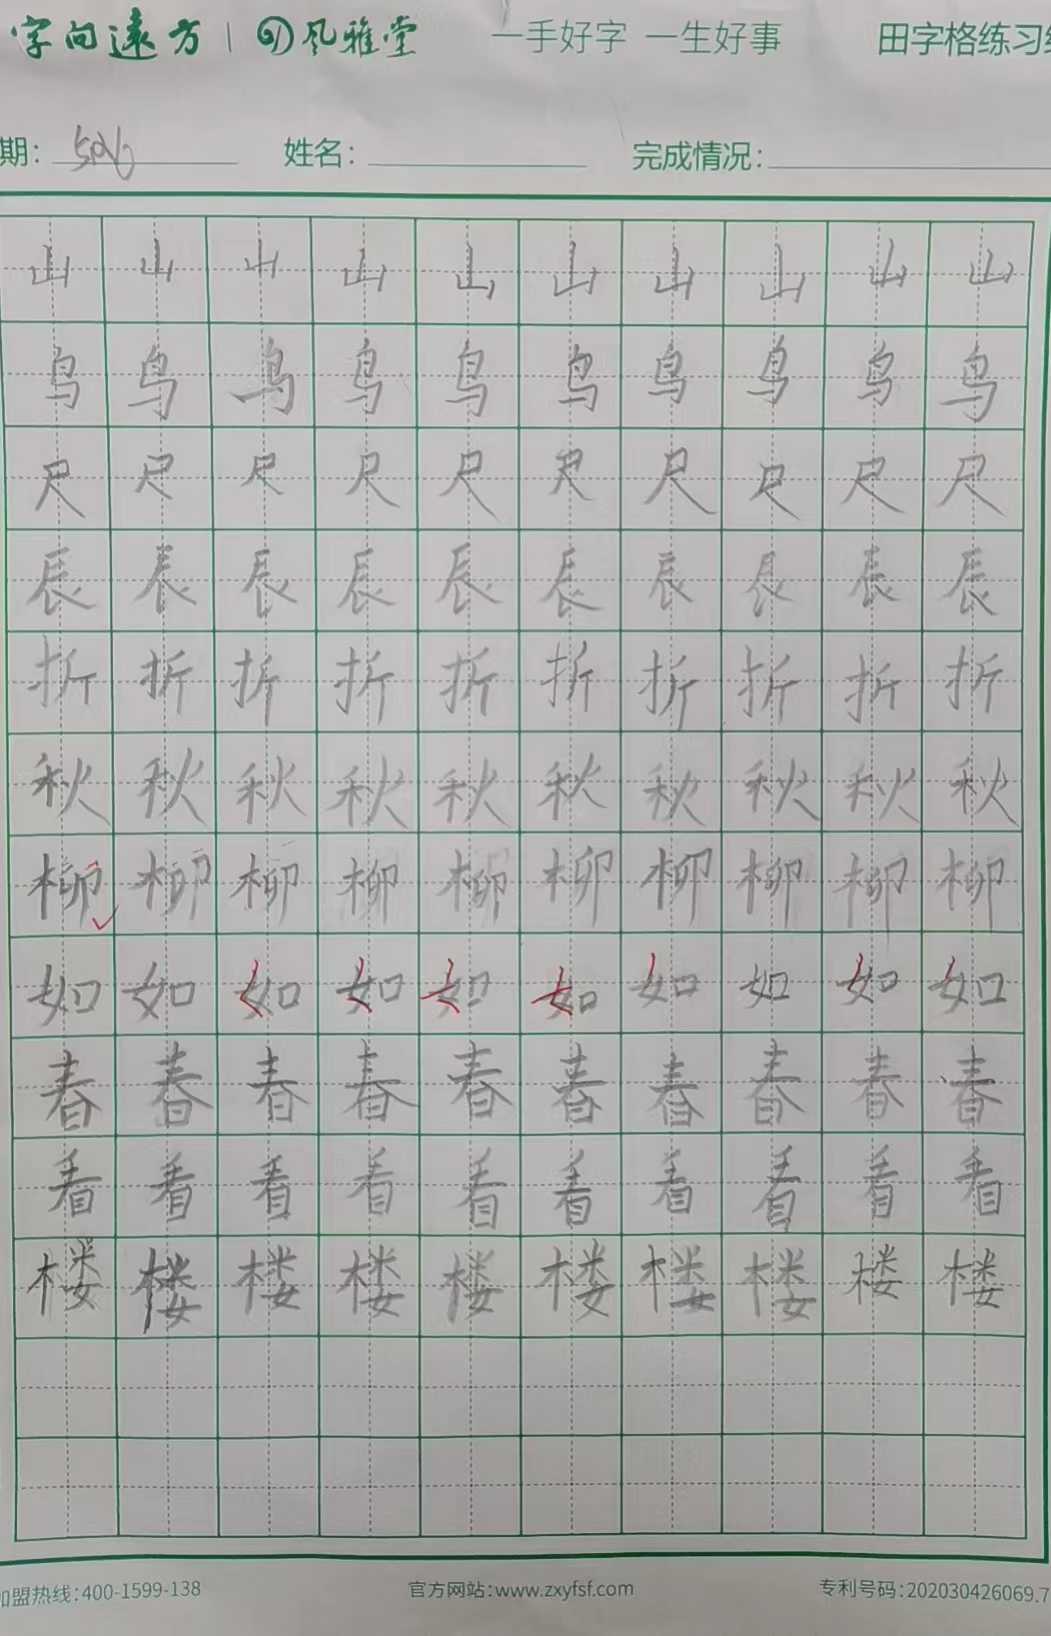 字向远方 | 风雅堂 一手好字 一生好事 田字格练习
期: 姓名: 完成情况:
山 山 山 山 山 山 山 山 山 山
鸟 鸟 鸟 鸟 鸟 鸟 鸟 鸟 鸟 鸟
尺 尺 尺 尺 尺 尺 尺 尺 尺 尺
辰 辰 辰 辰 辰 辰 辰 辰 辰 辰
折 折 折 折 折 折 折 折 折 折
秋 秋 秋 秋 秋 秋 秋 秋 秋 秋
柳 柳 柳 柳 柳 柳 柳 柳 柳 柳
如 如 如 如 如 如 如 如 如 如
春 春 春 春 春 春 春 春 春 春
看 看 看 看 看 看 看 看 看 看
楼 楼 楼 楼 楼 楼 楼 楼 楼 楼
加盟热线:400-1599-138 官方网站:www.zxyfsf.com 专利号码:202030426069.7